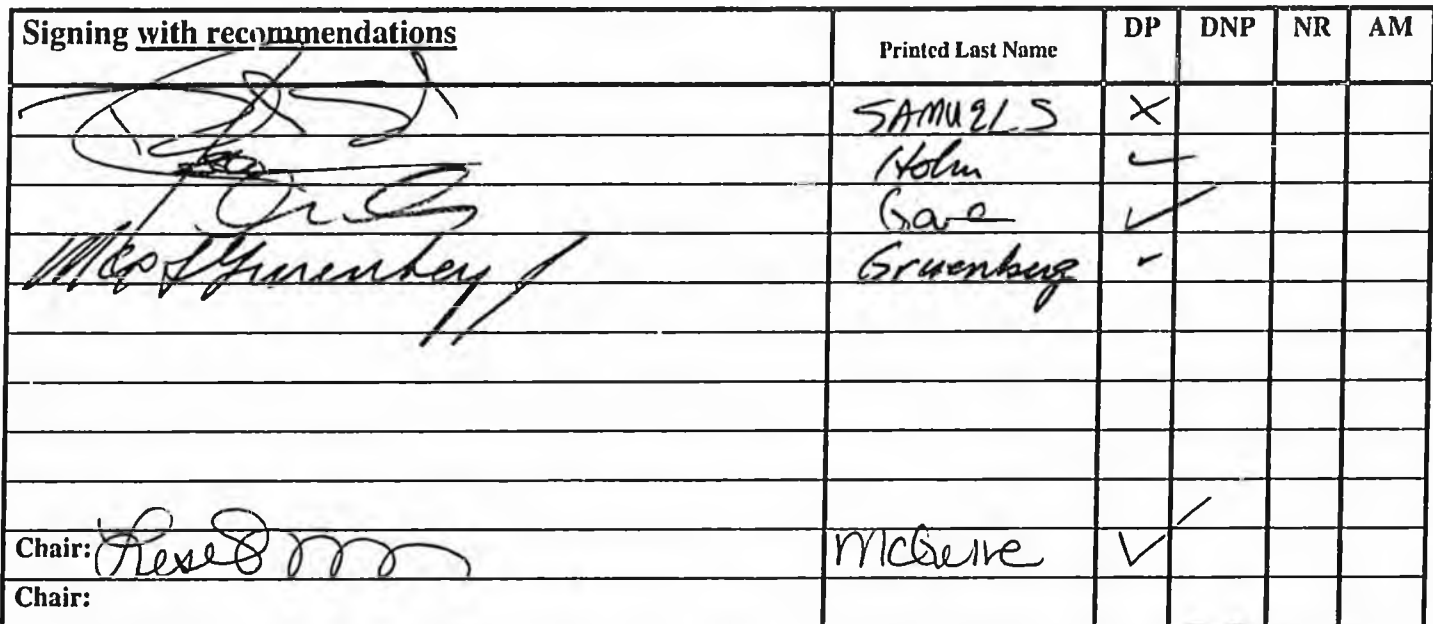 Signing with recommendations Printed Last Name DP DNP NR AM
SAMUELS X
Holm ✓
Gara ✓
Gruenberg ✓
Chair: McGuire ✓
Chair: